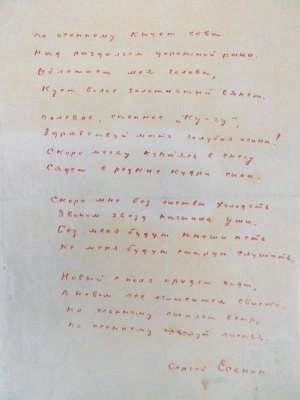 По осеннему кычет сова
Над раздольем дорожной рани.
Облетает моя голова,
Куст волос золотистый вянет.
Полевое, степное "Ку-гу",
Здравствуй мать голубая осина!
Скоро месяц купаясь в снегу
Сядет в редкие кудри сына.
Скоро мне без листвы холодеть
Звоном звезд насыпая уши.
Без меня будут юноши петь
Не меня будут старцы слушать.
Новый с поля придет поэт,
В новом лес огласится свисте.
По осеннему сыплет ветр,
По осеннему шепчут листья.
Сергей Есенин